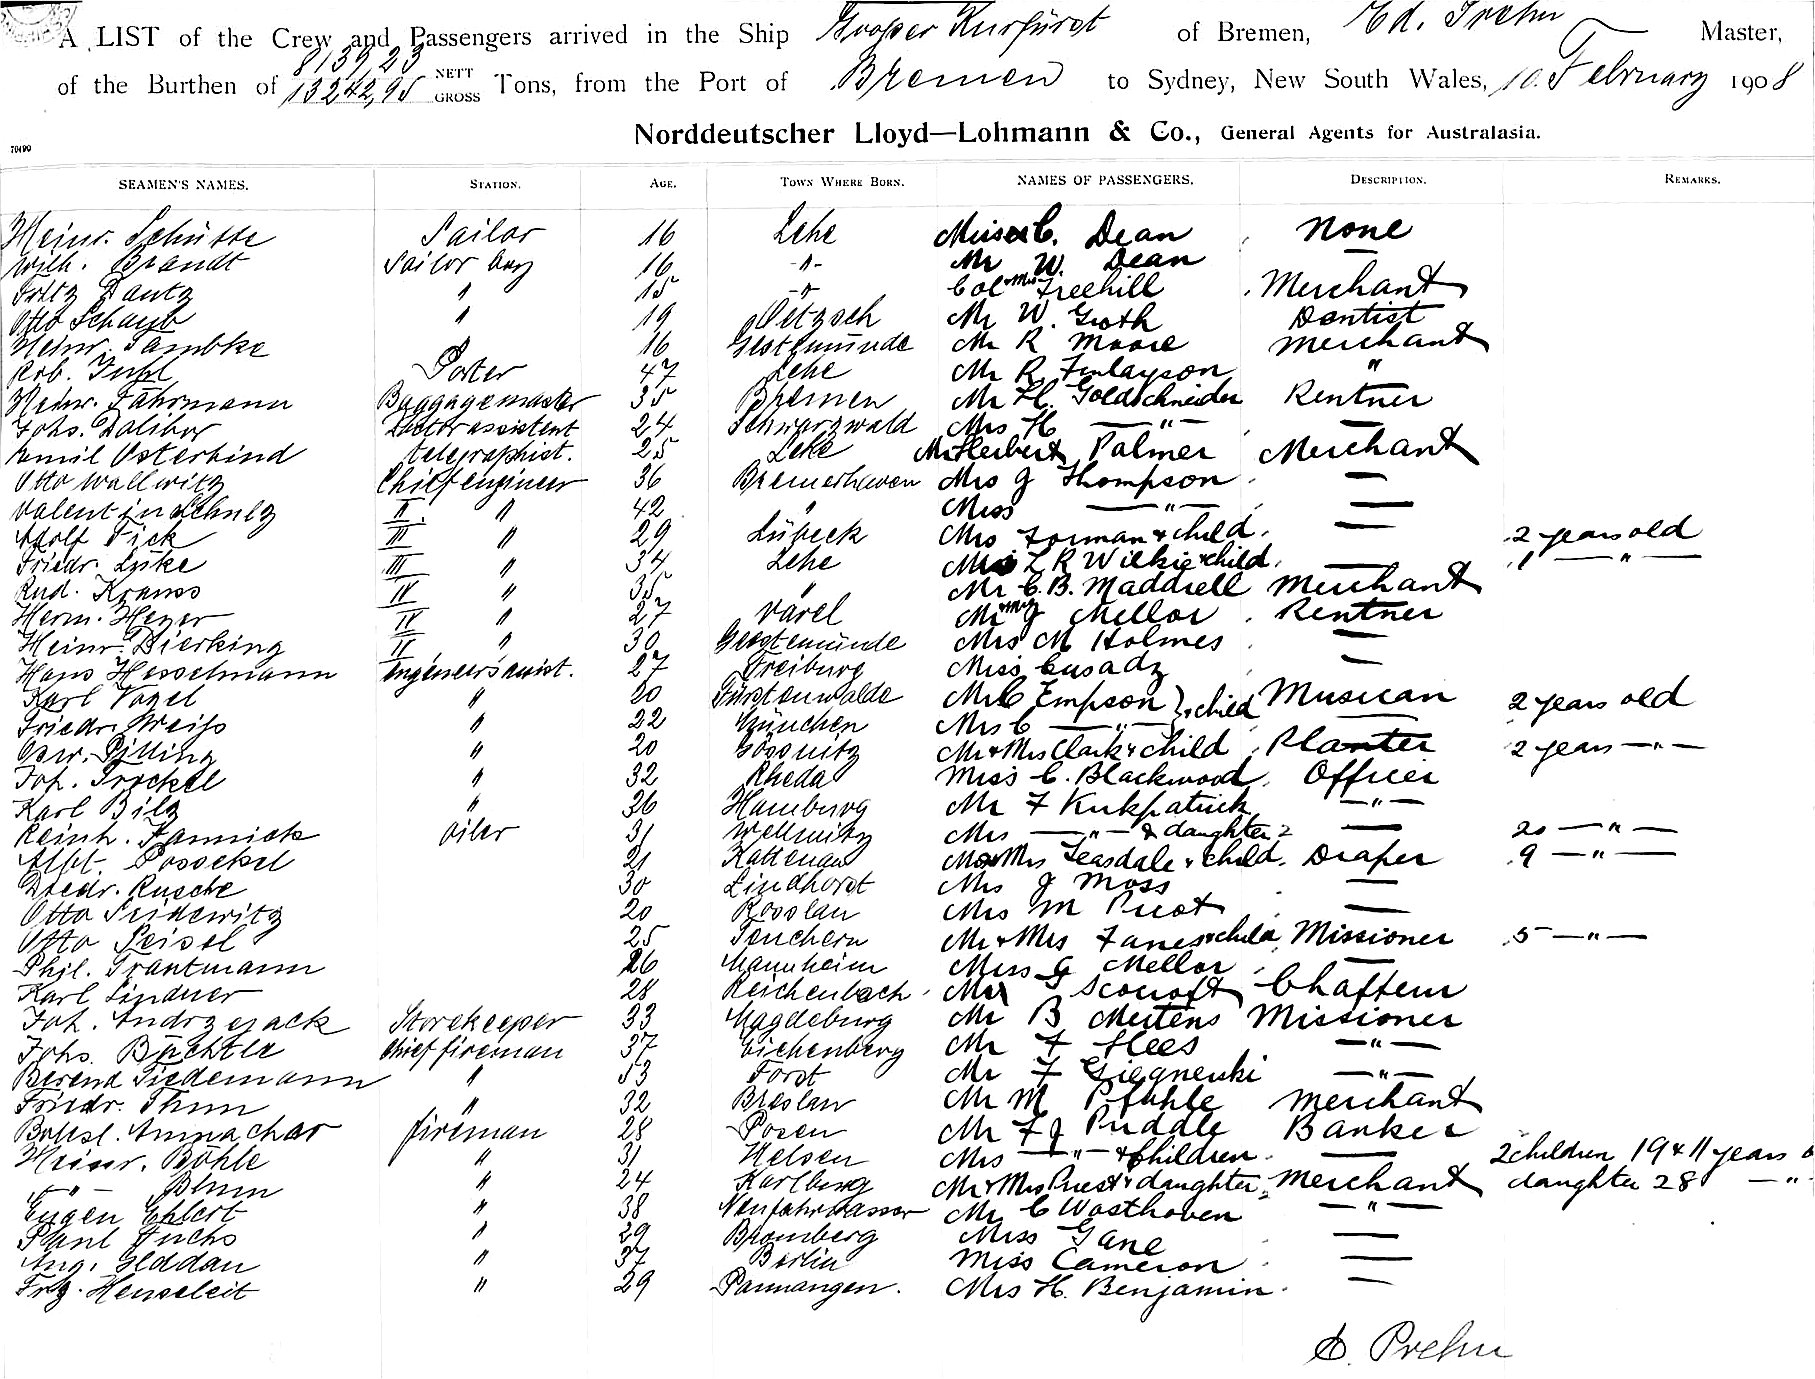 A LIST of the Crew and Passengers arrived in the Ship Grosser Kurfürst of Bremen, Ed. Prehn Master,
8139,23
of the Burthen of 13242,95 NETT GROSS Tons, from the Port of Bremen to Sydney, New South Wales, 10. February 1908
Norddeutscher Lloyd—Lohmann & Co., General Agents for Australasia.
70490
SEAMEN'S NAMES. STATION. AGE. TOWN WHERE BORN. NAMES OF PASSENGERS. DESCRIPTION. REMARKS.
Heinr. Schütte Sailor 16 Lehe C. Dean None
Wilh. Brandt Sailor boy 16 -"- Mr W. Dean —
Fritz Dantz " 15 -"- Col & Mrs Freehill Merchant
Otto Schaub " 19 Oetzsch Mr W. Groth Dentist
Heinr. Lambke 16 Geestemünde Mr R Moore Merchant
Rob. Porter 47 Lehe Mr R Finlayson "
Heinr. Fährmann Baggagemaster 35 Bremen Mr H. Goldschneider Rentner
Johs. Dalibor Doctorassistent 24 Schwarzwald Mrs H —"— —
Emil Osterhind telegraphist. 25 Lehe Mr Herbert Palmer Merchant
Otto Wallwitz Chief engineer 36 Bremerhaven Mrs J Thompson —
Valentin Schulz II. " 42 " Miss —"— —
Adolf Fick III " 29 Lübeck Mrs Forman & child. — 2 years old
Friedr. Lüke III " 34 Lehe L R Wilkie & child. — 1 —"—
Rud. Krauss IV " 35 " Mr C. B. Maddrell Merchant
Herm. Heyer IV " 27 Varel Mr & Mrs J Mellor Rentner
Heinr. Dierking IV " 30 Geestemünde Mrs M Holmes —
Hans Hesselmann Engineersassist. 27 Freiburg Miss Cusadz —
Karl Vogel " 20 Fürstenwalde Mr C Empson } & child Musican 2 years old
Friedr. Weiss " 22 München Mrs C —"— —
Osw. Pilling " 20 Gössnitz Mr & Mrs Clark & child Planter 2 years —"—
Joh. " 32 Rheda Miss C. Blackwood. Officer
Karl Bilz " 26 Hamburg Mr F Kirkpatrick —"—
Reinh. Jannick Oiler 31 Wellmitz Mrs —"— & daughter — 20 —"—
Albt. Possekel 21 Kattenau Mr & Mrs Teasdale & child. Draper 9 —"—
Diedr. Rusche 30 Lindhorst Mrs J Moss —
Otto Seidewitz 20 Rosslau Mrs M —
Otto Seisel 25 Teuchern Mr & Mrs Fanes & child Missioner 5 —"—
Phil. Trautmann 26 Mannheim Miss G Mellor —
Karl Lindner 28 Reichenbach Scocroft
Joh. Andrzejack Storekeeper 33 Magdeburg Mr B Mertens Missioner
Johs. Bächtle Chief fireman 37 Eichenberg Mr F Hees —"—
Berend Tiedemann " 53 Forst Mr F —"—
Friedr. Thun " 32 Breslau Mr M Pfahle Merchant
Annachar fireman 28 Posen Mr F J Priddle Banker
Heinr. Böhle " 31 Helsen Mrs —"— & Children — 2 children 19 & 11 years
—"— Blum " 24 Karlberg Mr & Mrs Priest & daughter Merchant daughter 28 —"—
Eugen Ehlert " 38 Neufahrwasser Mr C Wosthoven —"—
Paul Fuchs " 29 Bromberg Miss Gane —
Aug. Glddau " 37 Berlin Miss Cameron —
Frz. Henseleit " 29 Pannangen. Mrs H. Benjamin. —
E. Prehn